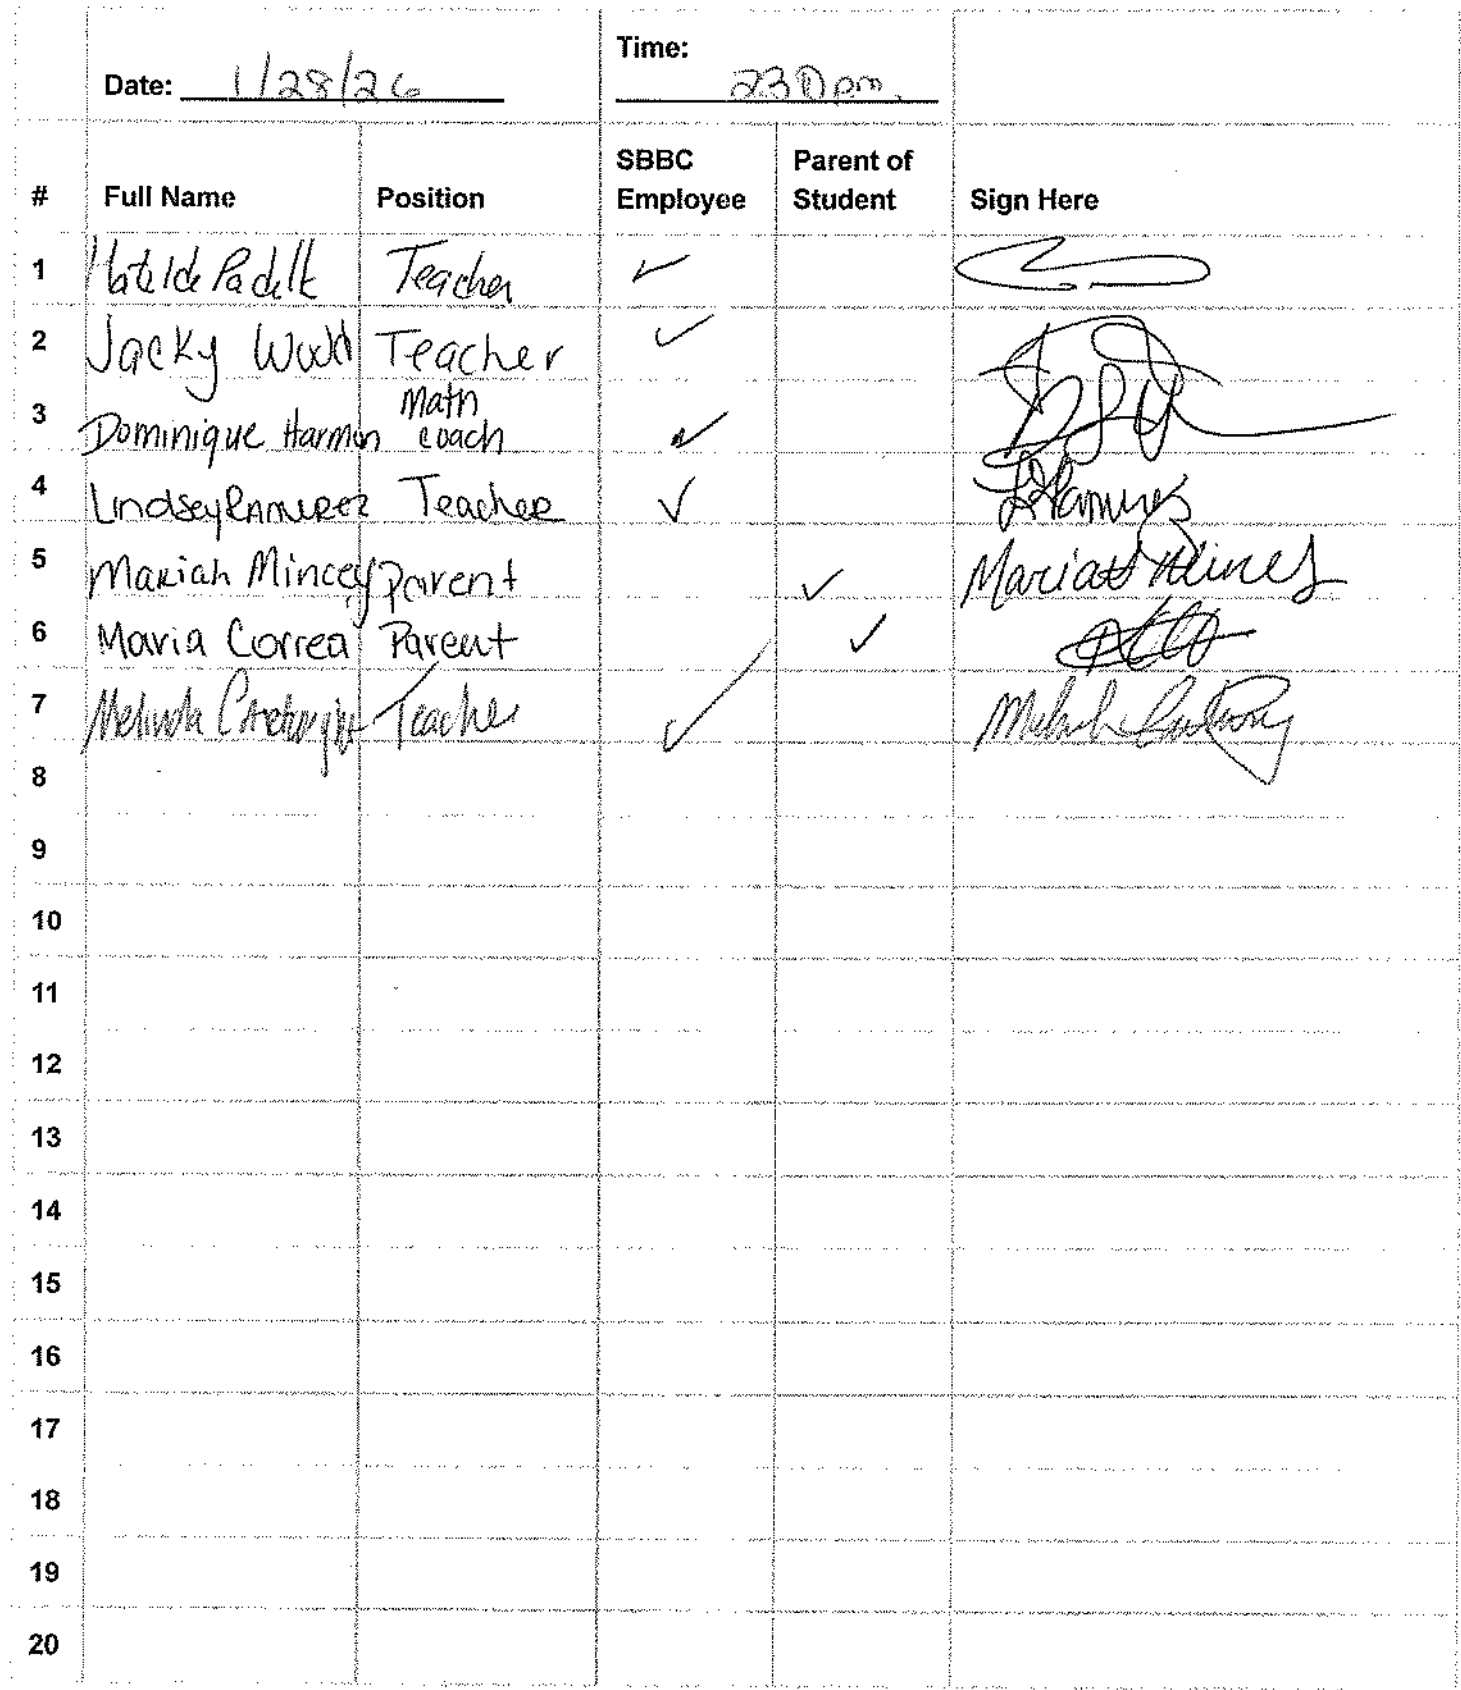 Date: 1/28/26 Time: 230pm.
# Full Name Position SBBC Employee Parent of Student Sign Here
1 Teacher ✓
2 Jacky Teacher ✓
3 Dominique Harmon Math coach ✓
4 Lindsey Ramirez Teacher ✓ Ramirez
5 Mariah Mincey Parent ✓ Mariah Mincey
6 Maria Correa Parent ✓
7 Melinda Teacher ✓
8
9
10
11
12
13
14
15
16
17
18
19
20